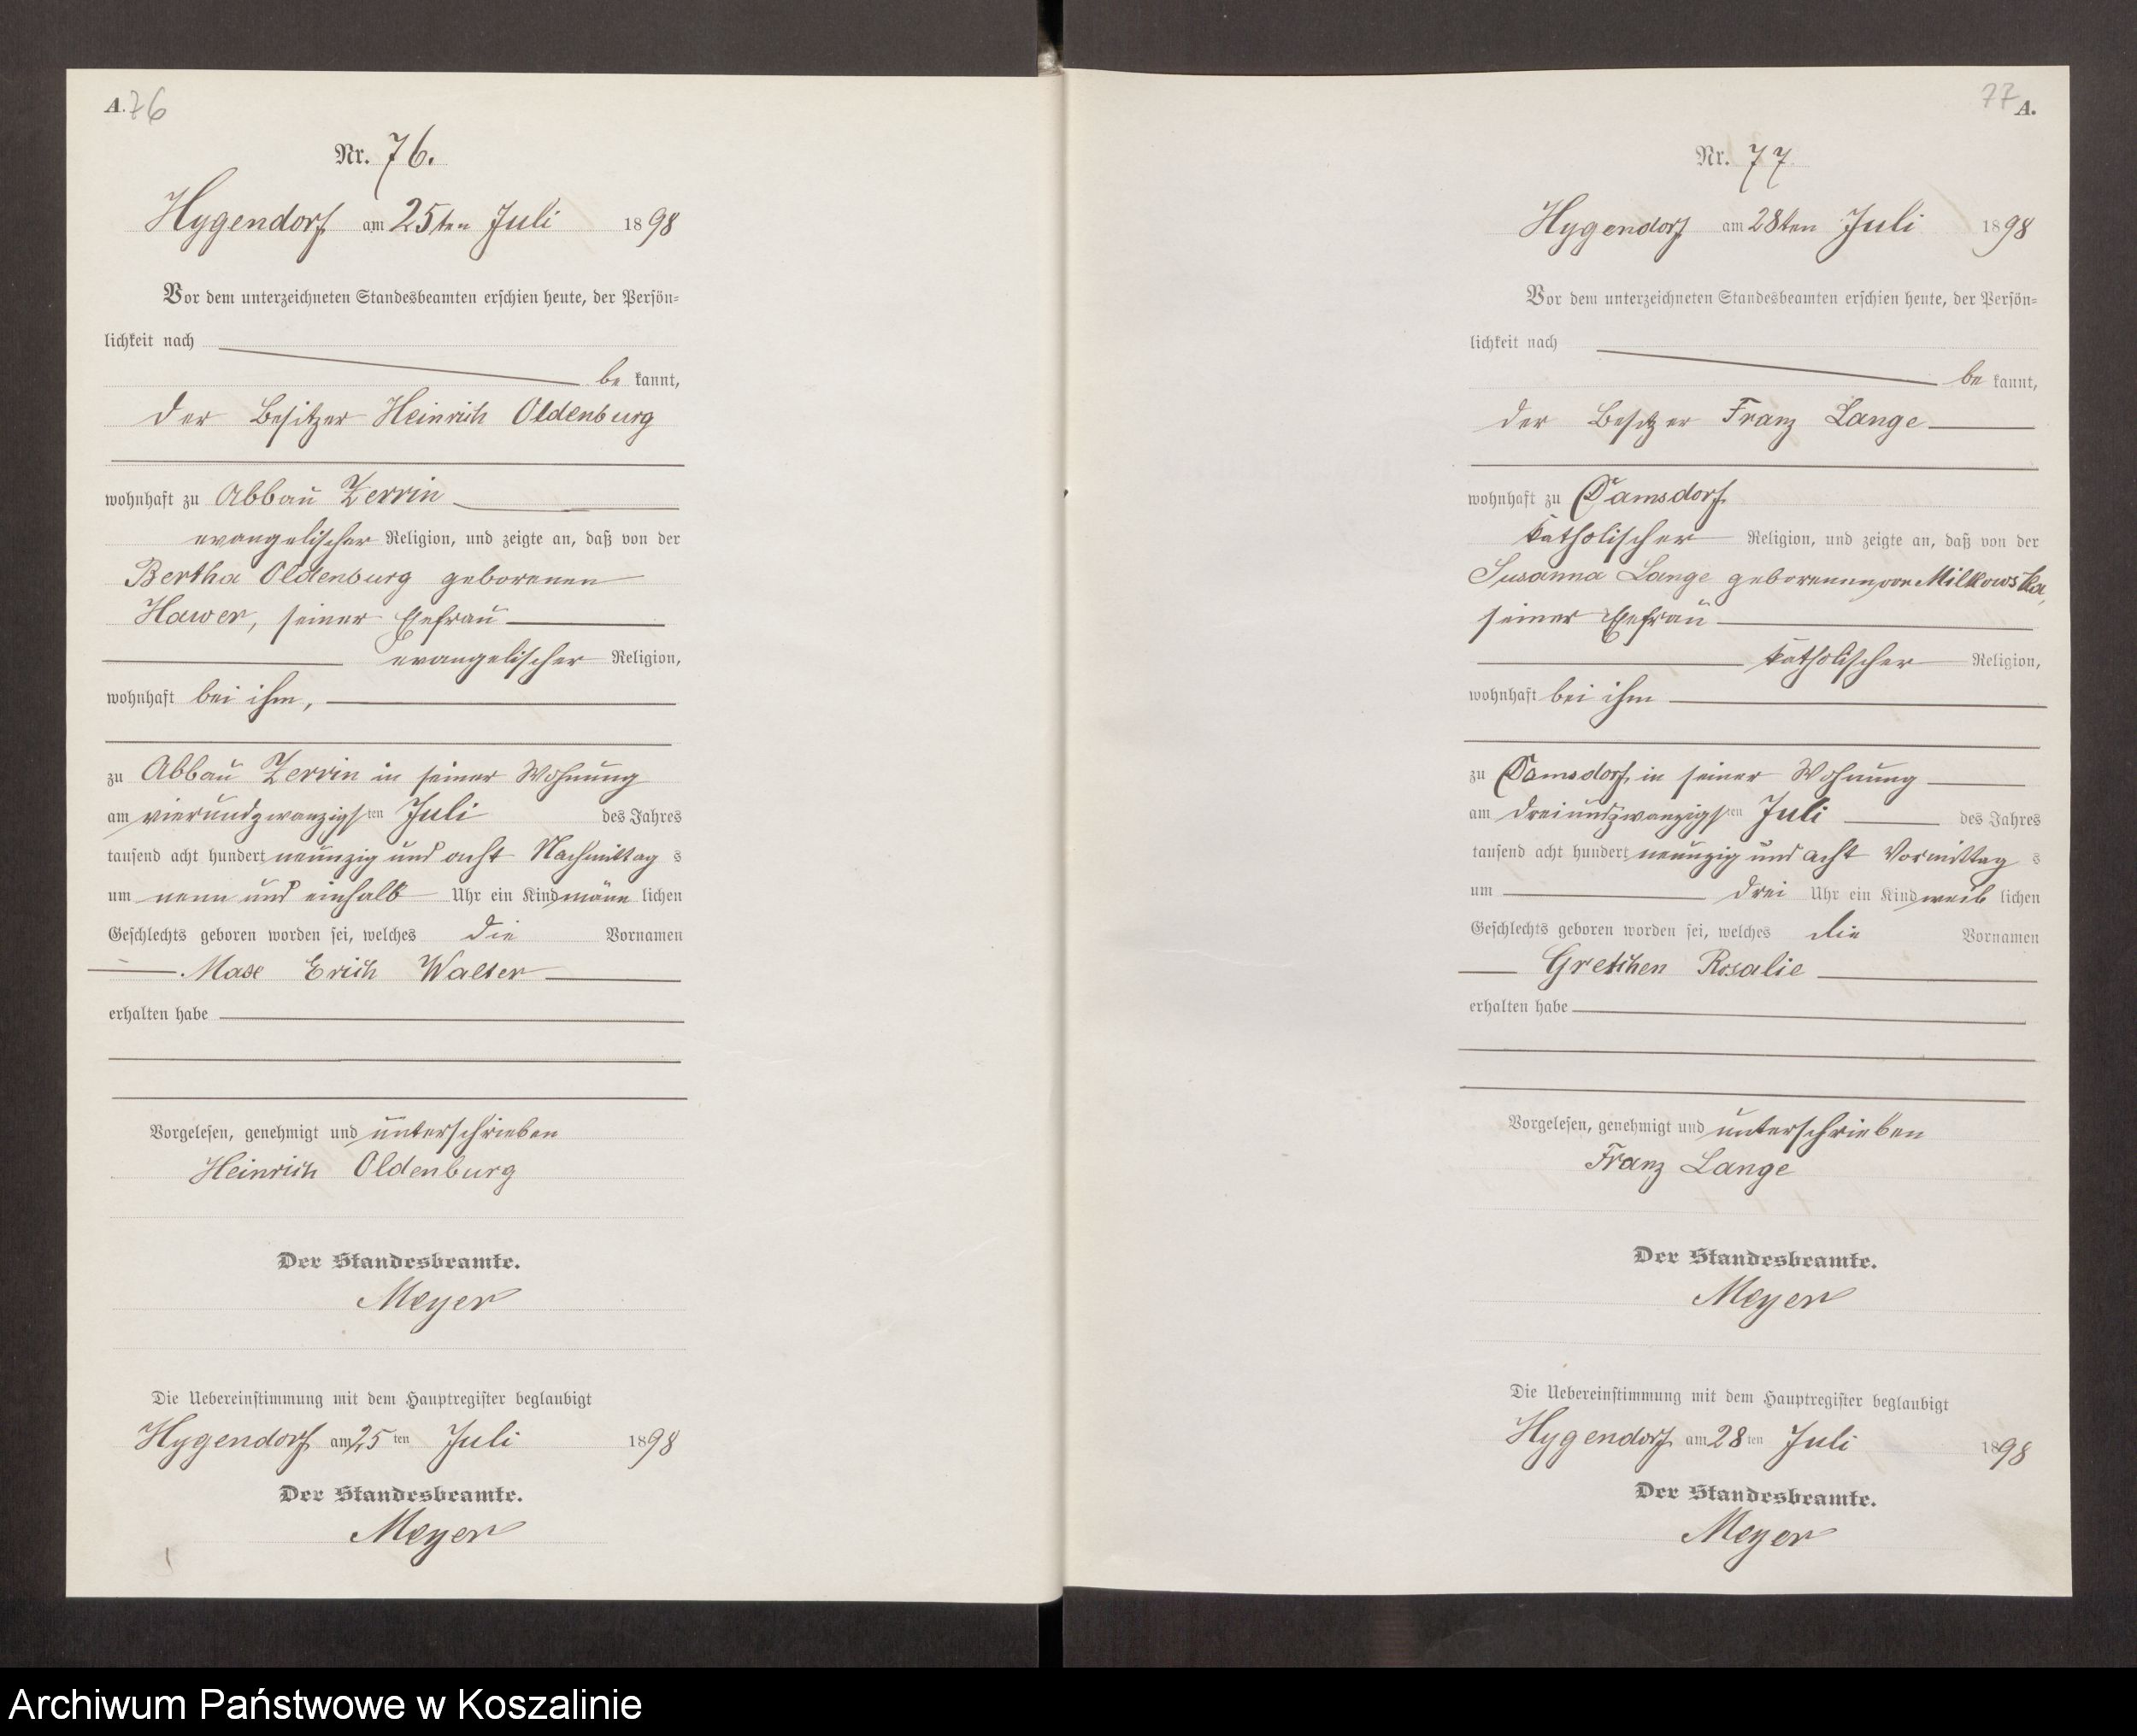 A. 76
Nr. 76.
Hygendorf am 25ten Juli 1898
Vor dem unterzeichneten Standesbeamten erschien heute, der Persön-
lichkeit nach
be kannt,
der Besitzer Heinrich Oldenburg
wohnhaft zu Abbau Zerrin
evangelischer Religion, und zeigte an, daß von der
Bertha Oldenburg geborenen
Hawer, seiner Ehefrau
evangelischer Religion,
wohnhaft bei ihm,
zu Abbau Zerrin in seiner Wohnung
am vierundzwanzigsten Juli des Jahres
tausend acht hundert neunzig und acht Nachmittag s
um neun und einhalb Uhr ein Kind männ lichen
Geschlechts geboren worden sei, welches die Vornamen
Max Erich Walter
erhalten habe
Vorgelesen, genehmigt und unterschrieben
Heinrich Oldenburg
Der Standesbeamte.
Meyer
Die Uebereinstimmung mit dem Hauptregister beglaubigt
Hygendorf am 25ten Juli 1898
Der Standesbeamte.
Meyer
77 A.
Nr. 77
Hygendorf am 28ten Juli 1898
Vor dem unterzeichneten Standesbeamten erschien heute, der Persön-
lichkeit nach
be kannt,
der Besitzer Franz Lange
wohnhaft zu Damsdorf
katholischer Religion, und zeigte an, daß von der
Susanna Lange geborenen von Milkowska,
seiner Ehefrau
katholischer Religion,
wohnhaft bei ihm
zu Damsdorf in seiner Wohnung
am dreiundzwanzigsten Juli des Jahres
tausend acht hundert neunzig und acht Vormittag s
um drei Uhr ein Kind weib lichen
Geschlechts geboren worden sei, welches die Vornamen
Gretchen Rosalie
erhalten habe
Vorgelesen, genehmigt und unterschrieben
Franz Lange
Der Standesbeamte.
Meyer
Die Uebereinstimmung mit dem Hauptregister beglaubigt
Hygendorf am 28ten Juli 1898
Der Standesbeamte.
Meyer
Archiwum Państwowe w Koszalinie